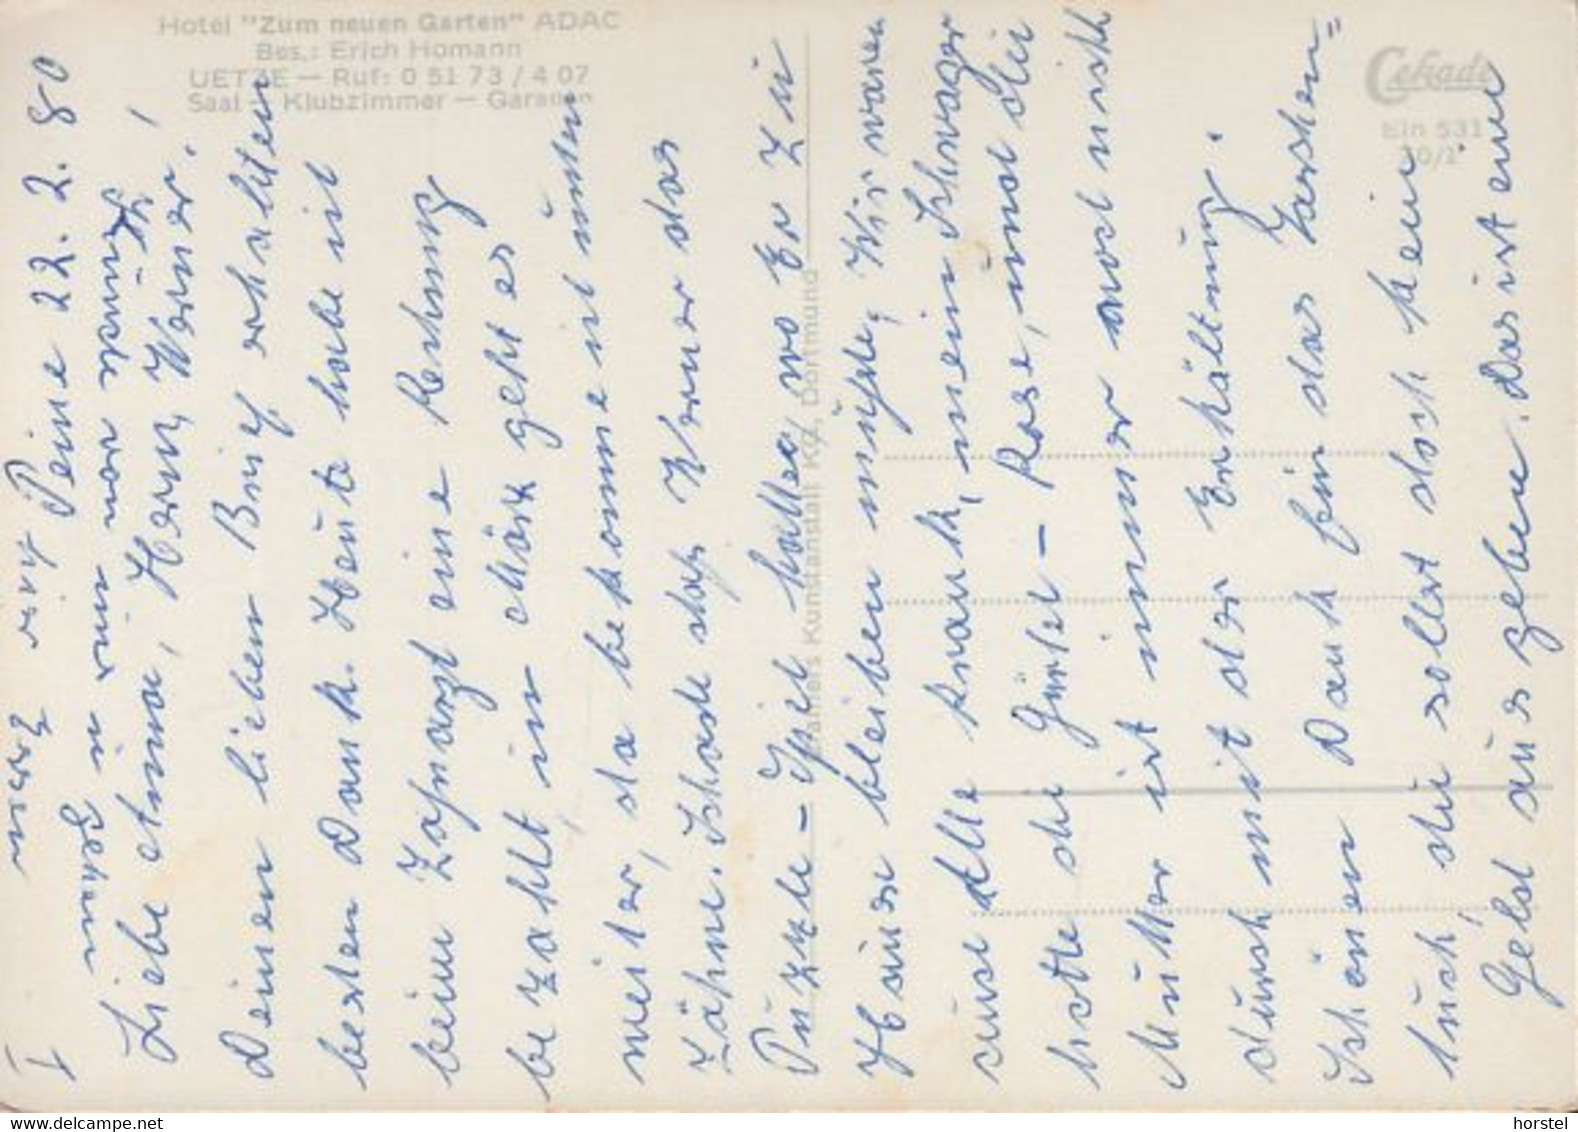 Hotel "Zum neuen Garten" ADAC
Bes.: Erich Homann
UETZE — Ruf: 0 51 73 / 4 07
Saal — Klubzimmer — Garagen
Cekade
Ein 531
70/1
Cramers Kunstanstalt KG, Dortmund
I
Peine 22. 2. 80
Liebe Anna, Herrn Werner!
Deinen lieben Brief erhalten
besten Dank. Heute habe ich
beim Zahnarzt eine Rechnung
bezahlt, im März geht es
weiter, da bekomme ich unten
Zähne. Schade daß Werner das
Puzzle-Spiel hatte wo Er zu
Hause bleiben mußte, Wir waren
auch Alle krank, mein Schwager
hatte die Gürtel-Rose, und die
Mutter ist immer noch nicht
durch mit der Erkältung.
Schönen Dank für das Taschen=
tuch, du sollst doch kein
Geld ausgeben. Das ist eine
horstel